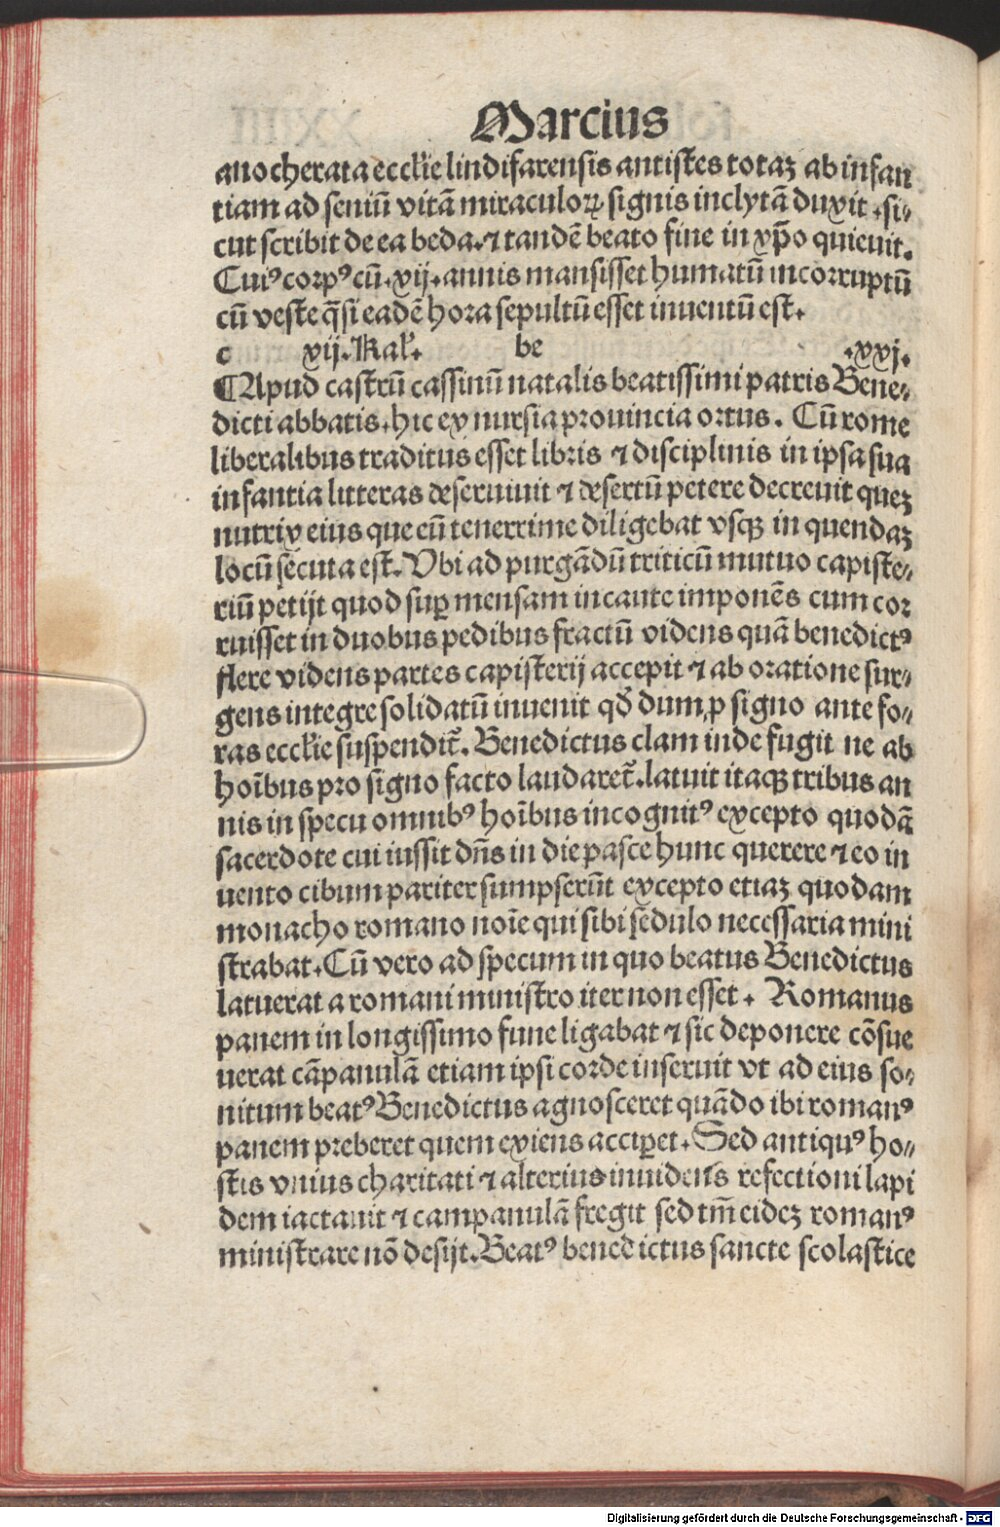 Marcius
anocherata eccƚie lindifarensis antistes totaꝫ ab infan
tiam ad seniū vitā miraculoꝝ signis inclytā duxit. si⸗
cut scribit de ea beda. ⁊ tandē beato fine in xp̄o quieuit.
Cuiꝰ corpꝰ cū .xij. annis mansisset humatū incorruptū
cū veste q̄si eadē hora sepultū esset inuentū est.
c xij. Kaƚ. be .xxj.
¶ Apud castrū cassinū natalis beatissimi patris Bene⸗
dicti abbatis. hic ex nursia prouincia ortus. Cū rome
liberalibus traditus esset libris ⁊ disciplinis in ipsa sua
infantia litteras deseruiuit ⁊ desertū petere decreuit queꝫ
nutrix eius que eū tenerrime diligebat vsqꝫ in quendaꝫ
locū secuta est. Vbi ad purgādū triticū mutuo capiste⸗
riū petijt quod suꝑ mensam incaute imponēs cum cor
ruisset in duobus pedibus fractū videns quā benedictꝰ
flere videns partes capisterij accepit ⁊ ab oratione sur⸗
gens integre solidatū inuenit qď dum ꝓ signo ante fo⸗
ras eccƚie suspendit̄. Benedictus clam inde fugit ne ab
hoībus pro signo facto laudaret̄. latuit itaqꝫ tribus an
nis in specu omnibꝰ hoībus incognitꝰ excepto quodā
sacerdote cui iussit dn̄s in die pasce hunc querere ⁊ eo in
uento cibum pariter sumpserūt excepto etiaꝫ quodam
monacho romano noīe qui sibi sedulo necessaria mini
strabat. Cū vero ad specum in quo beatus Benedictus
latuerat a romani ministro iter non esset. Romanus
panem in longissimo fune ligabat ⁊ sic deponere cōsue
uerat cāpanulā etiam ipsi corde inseruit vt ad eius so⸗
nitum beatꝰ Benedictus agnosceret quādo ibi romanꝰ
panem preberet quem exiens acciꝑet. Sed antiquꝰ ho⸗
stis vnius charitati ⁊ alterius inuidens refectioni lapi
dem iactauit ⁊ campanulā fregit sed tm̄ eideꝫ romanꝰ
ministrare nō desijt. Beatꝰ benedictus sancte scolastice
Digitalisierung gefördert durch die Deutsche Forschungsgemeinschaft - DFG